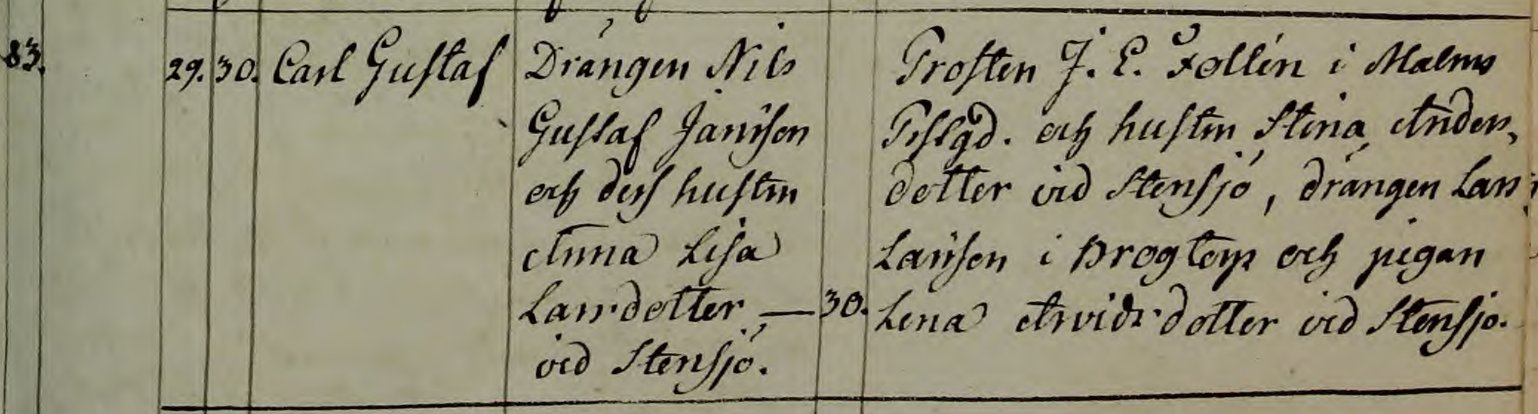 83. 29. 30. Carl Gustaf
Drängen Nils
Gustaf Jansson
och dess hustru
Anna Lisa
Larsdotter — 30.
vid Stensjö.
Prosten J. E. Follin i Malms
Prstgd. och hustru Stina Anders,
dotter vid Stensjö, drängen Lars
Larsson i Brogtorp och pigan
Lena Arvidsdotter vid Stensjö.